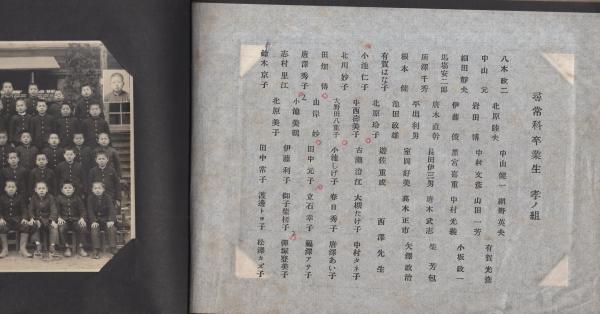 尋常科卒業生 孝ノ組
八木政二 北原睦夫 中山健一 網野英夫 有賀光彦
中山元 岩田博 中村文彦 山田一芳 小坂政一
細田静夫 伊藤俊 黒宮喜重 中村光義 柴芳包
馬場安二郎 唐木直幹 長田伊三男 唐木武志 矢澤政治
唐澤千秀 平出利男 室岡好美 高木正市
根本健 池田政雄 遊佐重成 西澤先生
有賀はな子 北原玲子 古瀬澄江 大槻たけ子 中村タネ子
小池仁子 中西壽美子 小池しげ子 春日秀子 唐澤あい子
北川妙子 大野田八重子 田中元子 立石幸子 福澤アサ子
田畑傳 山岸妙 伊藤利子 御子柴櫻子 登美子
唐澤秀子 小池美鶴 田中常子 渡邊トヨ子 松澤カズ子
志村里江 北原美子
鈴木京子